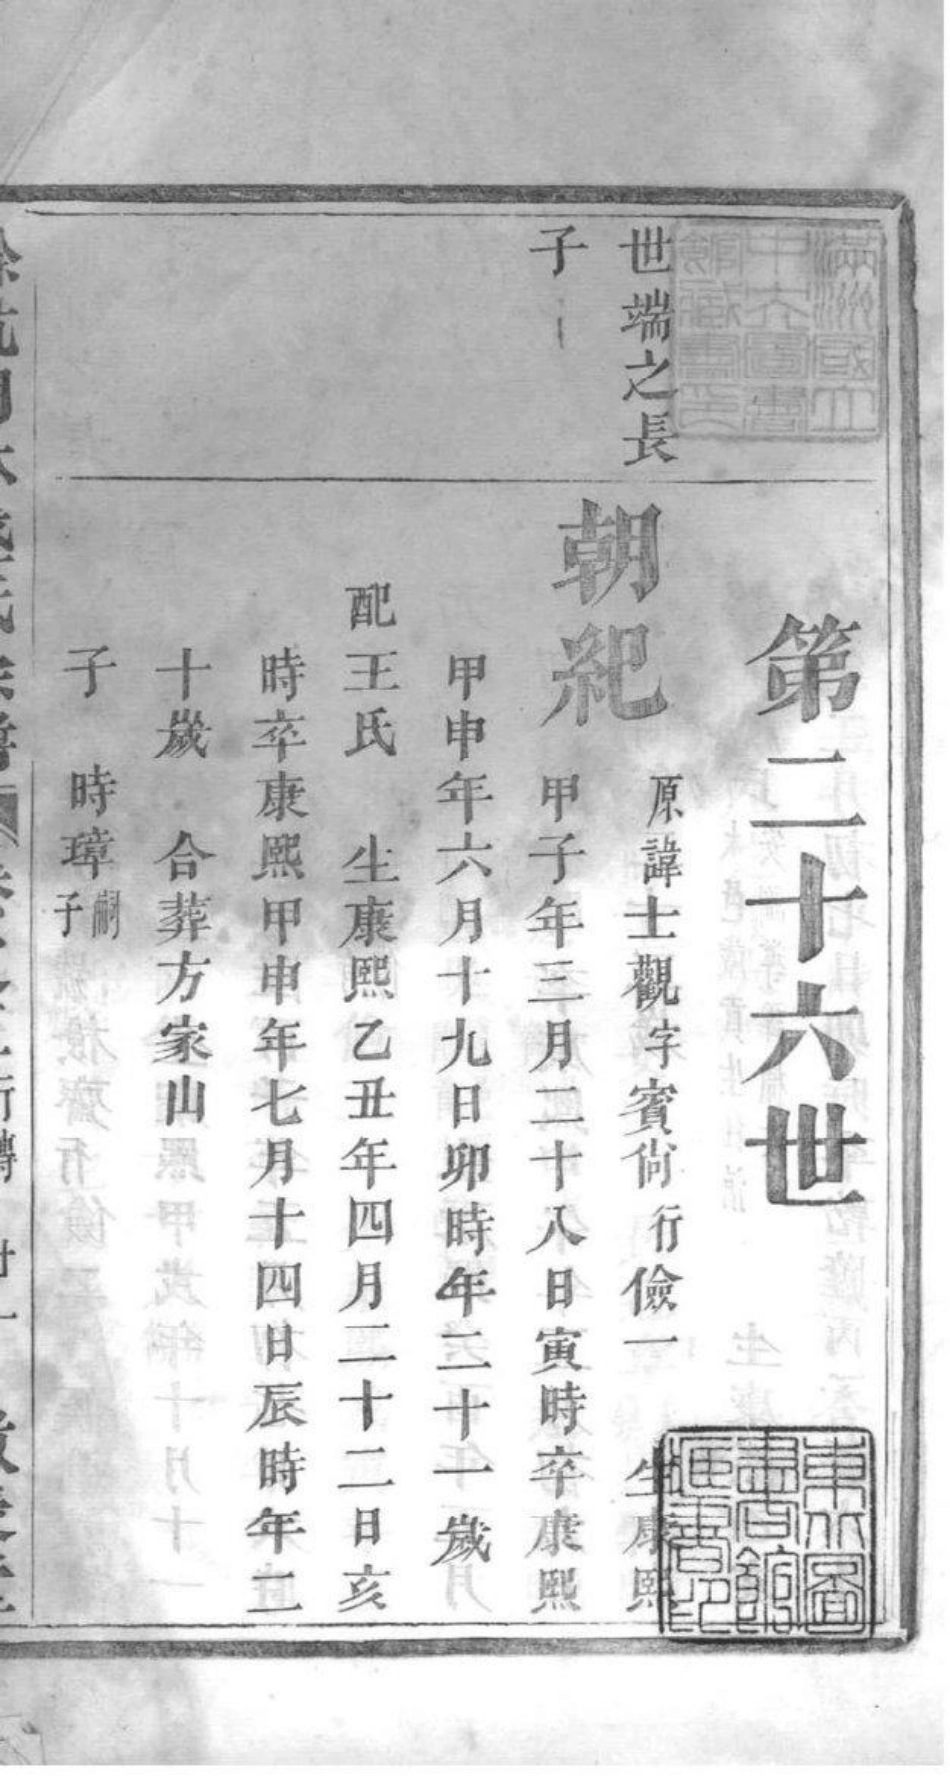 滿洲國立
中央圖書
館籌備
第二十六世
世端之長
子
朝紀
原諱士觀字賓尙行儉一 生康熙
甲子年三月二十八日寅時卒康熙
甲申年六月十九日卯時年二十一歲
配王氏 生康熙乙丑年四月二十二日亥
時卒康熙甲申年七月十四日辰時年二
十歲 合葬方家山
子 時璋嗣子
東北圖
書館